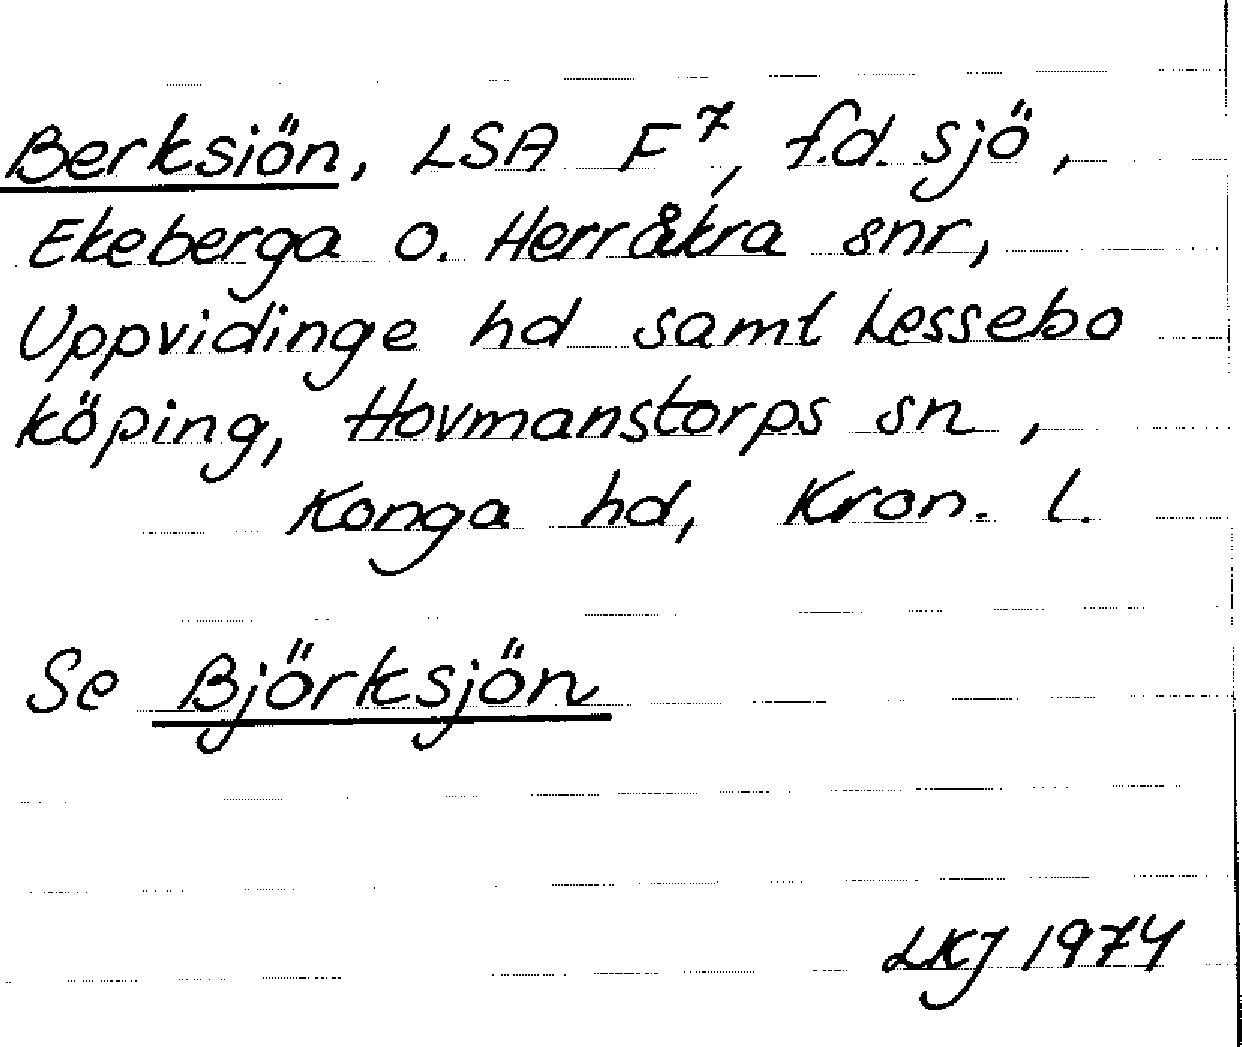 Berksiön, LSA F⁷, f.d. sjö,
Ekeberga o. Herråkra snr,
Uppvidinge hd samt Lessebo
köping, Hovmanstorps sn,
Konga hd, Kron. l.
Se Björksjön
LKJ 1974